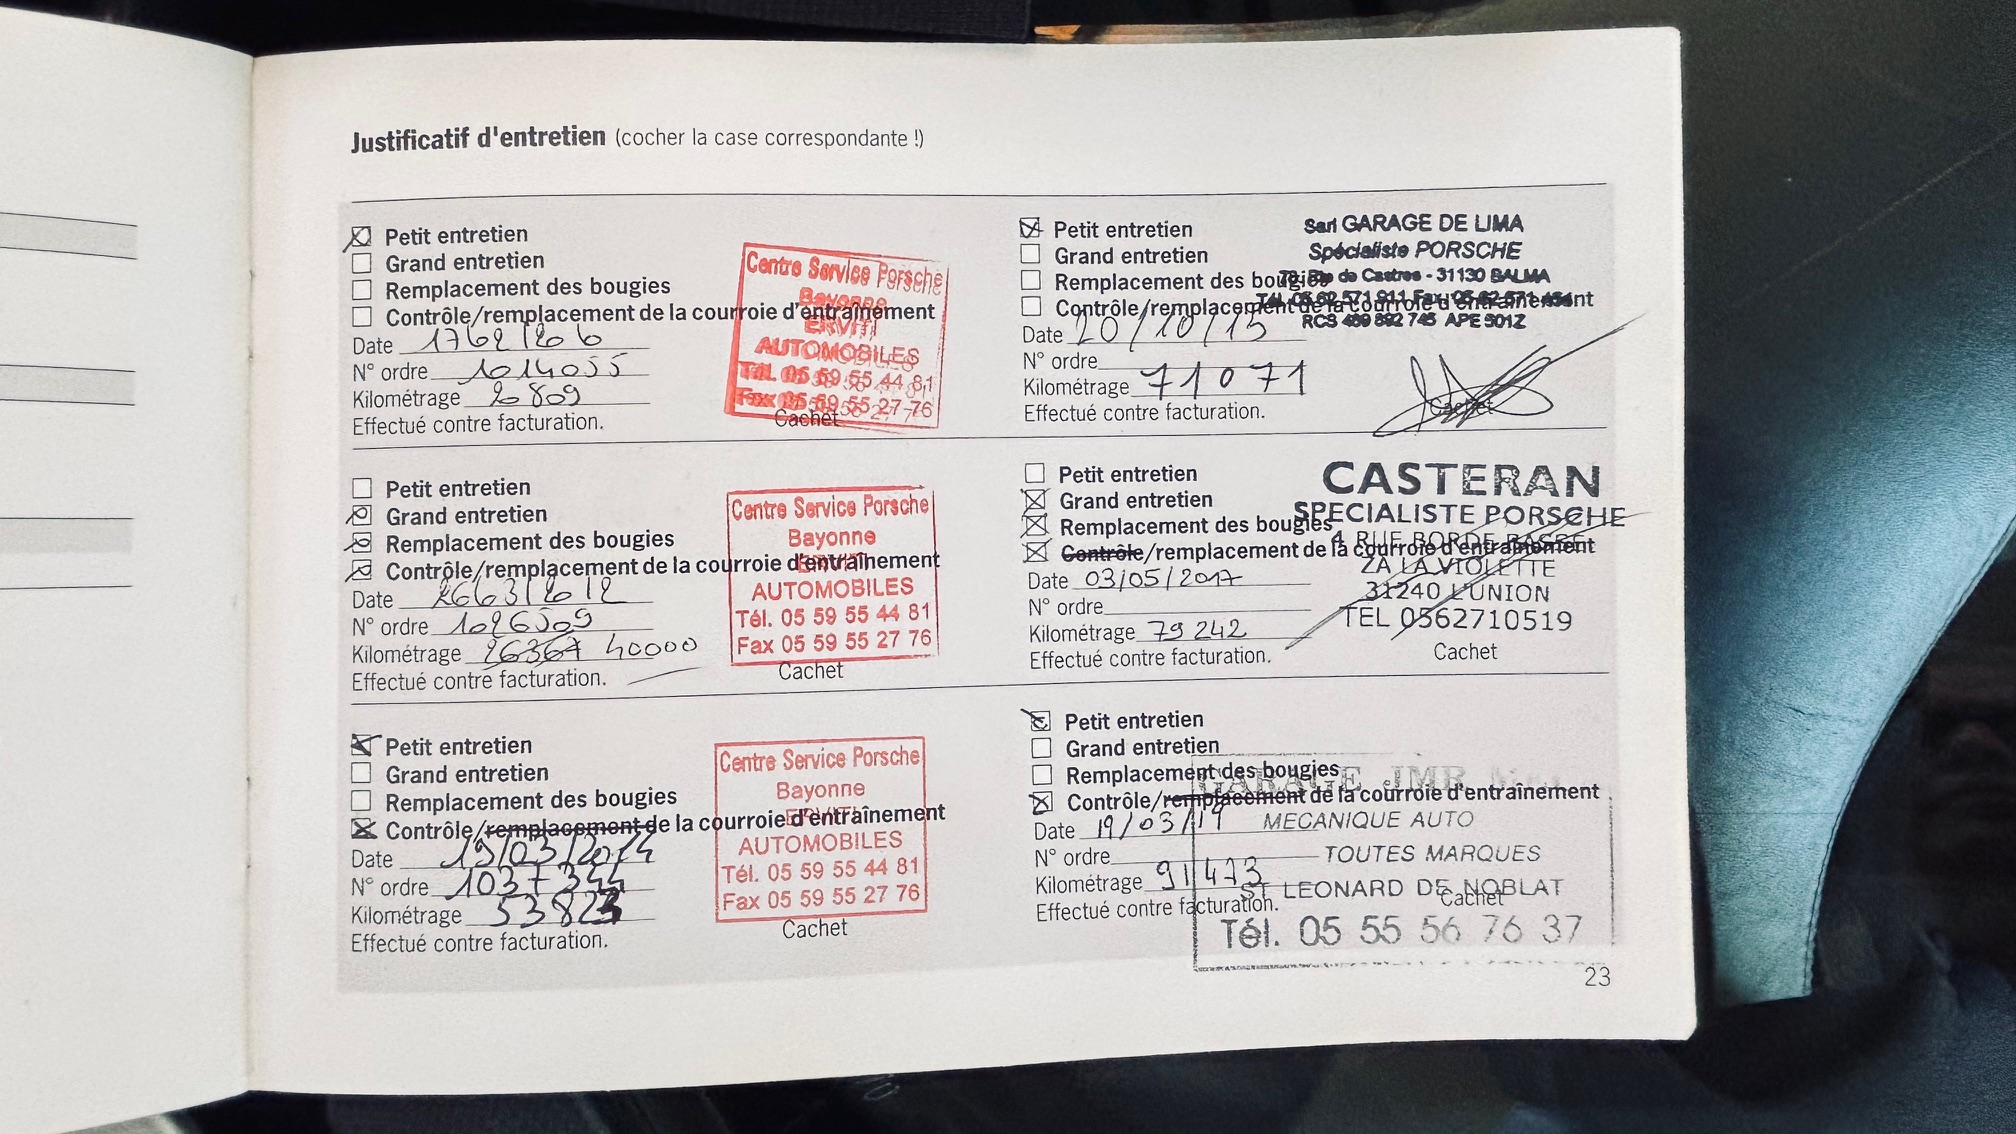 Justificatif d'entretien (cocher la case correspondante !)
Petit entretien
Grand entretien
Remplacement des bougies
Contrôle/remplacement de la courroie d'entraînement
Date
N° ordre 1014055
Kilométrage 2809
Effectué contre facturation.
Centre Service Porsche
Bayonne
ERVITI
AUTOMOBILES
Tél. 05 59 55 44 81
Fax 05 59 55 27 76
Cachet
Petit entretien
Grand entretien
Remplacement des bougies
Contrôle/remplacement de la courroie d'entraînement
Date
N° ordre 1026509
Kilométrage 26367 40000
Effectué contre facturation.
Centre Service Porsche
Bayonne
ERVITI
AUTOMOBILES
Tél. 05 59 55 44 81
Fax 05 59 55 27 76
Cachet
Petit entretien
Grand entretien
Remplacement des bougies
Contrôle/remplacement de la courroie d'entraînement
Date 19/03/2014
N° ordre 1037344
Kilométrage 53823
Effectué contre facturation.
Centre Service Porsche
Bayonne
ERVITI
AUTOMOBILES
Tél. 05 59 55 44 81
Fax 05 59 55 27 76
Cachet
Petit entretien
Grand entretien
Remplacement des bougies
Contrôle/remplacement de la courroie d'entraînement
Date 20/10/15
N° ordre
Kilométrage 71071
Effectué contre facturation.
Sarl GARAGE DE LIMA
Spécialiste PORSCHE
de Castres - 31130 BALMA
Tél. 05 62 571 911 Fax: 05 62 571
RCS 489 892 745 APE 501Z
Cachet
Petit entretien
Grand entretien
Remplacement des bougies
Contrôle/remplacement de la courroie d'entraînement
Date 03/05/2017
N° ordre
Kilométrage 79 242
Effectué contre facturation.
CASTERAN
SPECIALISTE PORSCHE
4 RUE BORDE BASSE
ZA LA VIOLETTE
31240 L'UNION
TEL 0562710519
Cachet
Petit entretien
Grand entretien
Remplacement des bougies
Contrôle/remplacement de la courroie d'entraînement
Date 19/03/19
N° ordre
Kilométrage 91473
Effectué contre facturation.
GARAGE JMB
MECANIQUE AUTO
TOUTES MARQUES
ST LEONARD DE NOBLAT
Tél. 05 55 56 76 37
Cachet
23